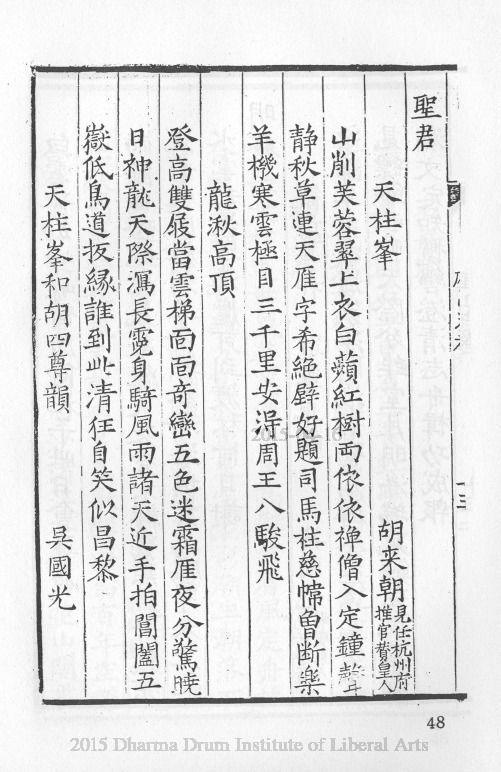 聖君
天柱峯 胡来朝見任杭州府推官贊皇人
山削芙蓉翠上衣白蘋紅樹兩依依禅僧入定鐘聲
静秋草連天雁字希絶壁好題司馬柱慈幃曾断樂
羊機寒雲極目三千里安淂周王八駿飛
龍湫高頂
登高雙屐當雲梯面面奇巒五色迷霜雁夜分驚曉
日神龍天際瀉長霓身騎風雨諸天近手拍閶闔五
嶽低鳥道扳緣誰到此清狂自笑似昌黎
天柱峯和胡四尊韻 吳國光
十三
48
2015 Dharma Drum Institute of Liberal Arts